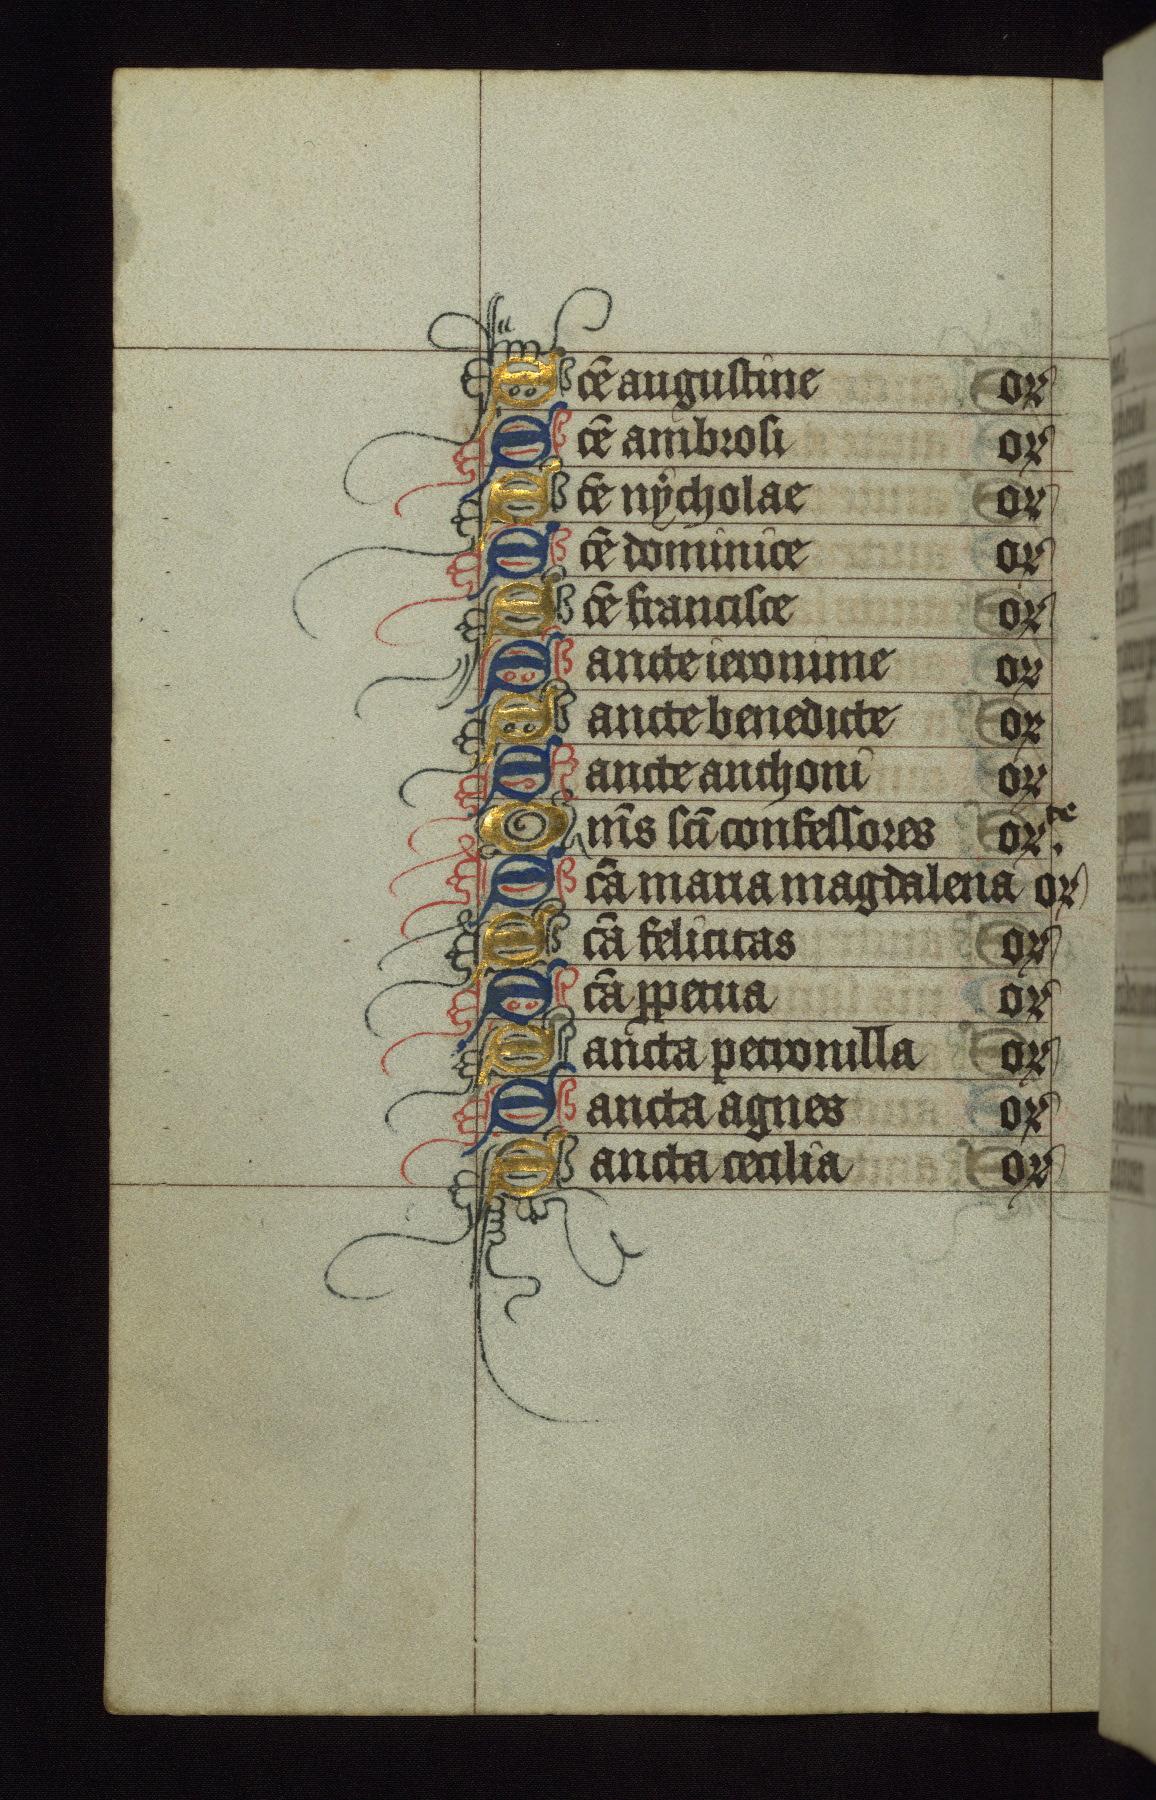 Scē augustine or
Scē ambrosi or
Scē nẏcholae or
Scē dominice or
Scē francisce or
Sancte ieronime or
Sancte benedicte or
Sancte anthoni or
Om̄s sct̄i confessores orte.
Scā maria magdalena or
Scā felicitas or
Scā ꝑpetua or
Sancta petronilla or
Sancta agnes or
Sancta cecilia or